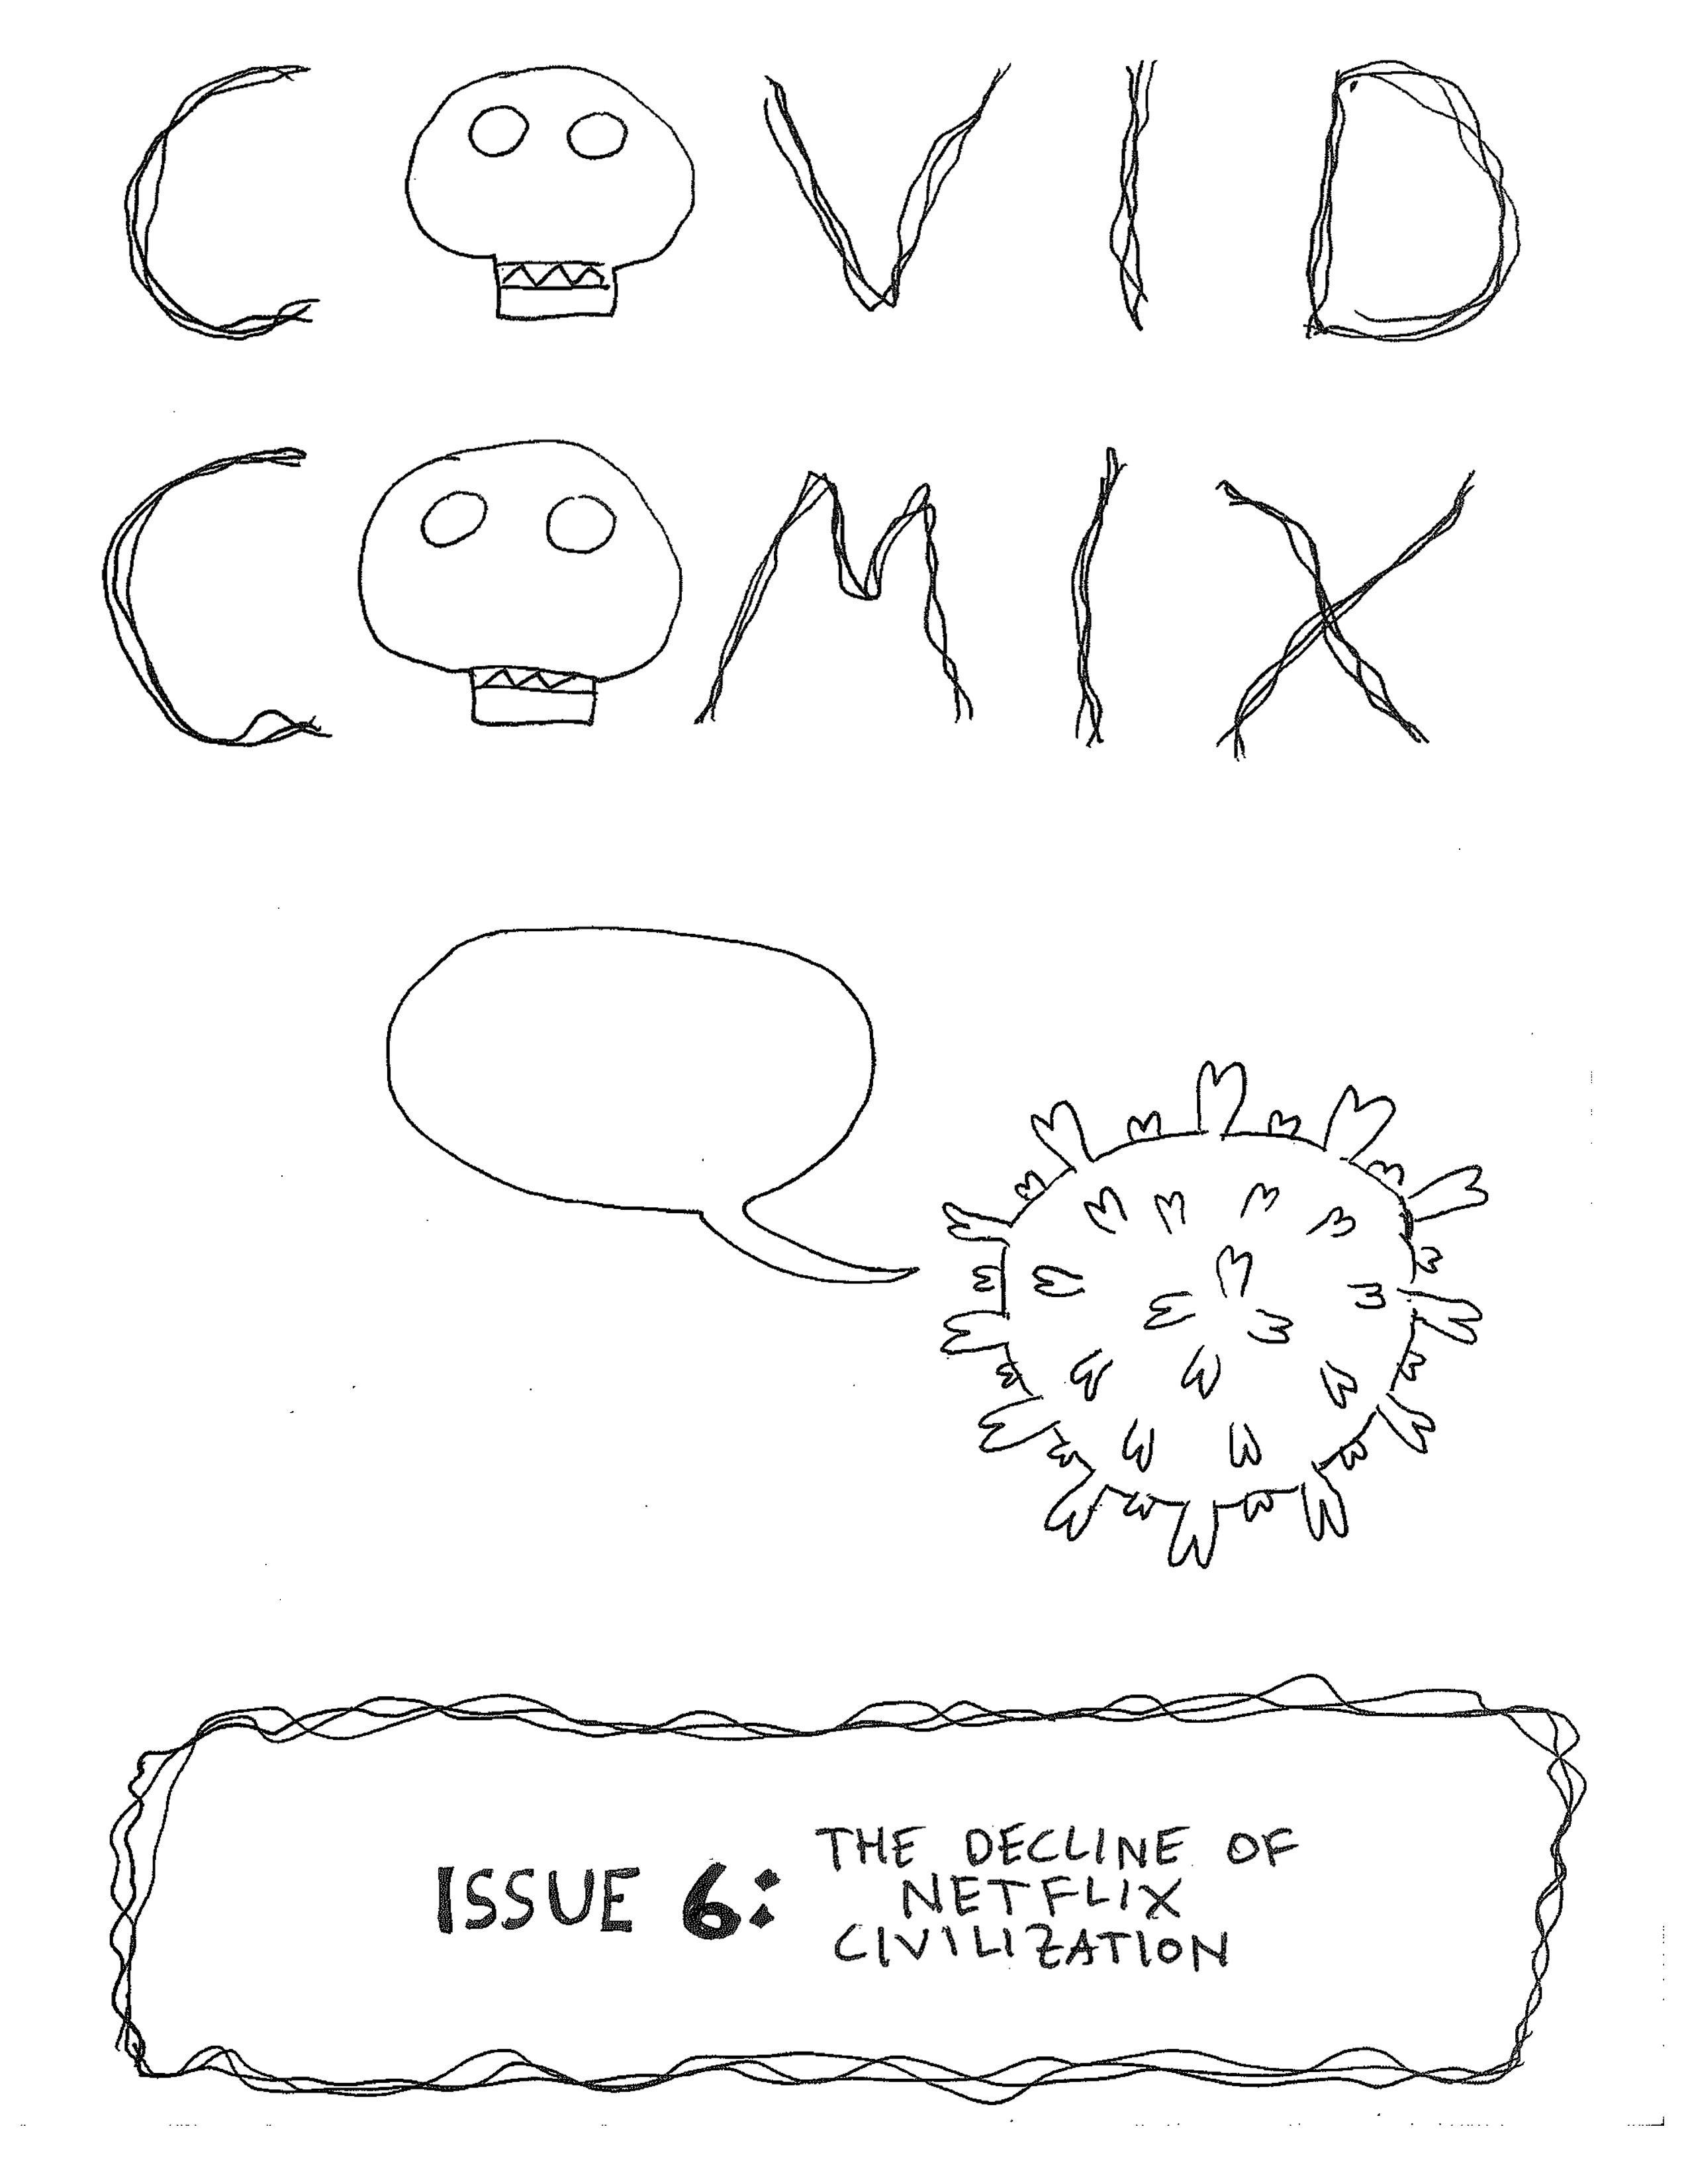 COVID
COMIX
ISSUE 6: THE DECLINE OF
NETFLIX
CIVILIZATION